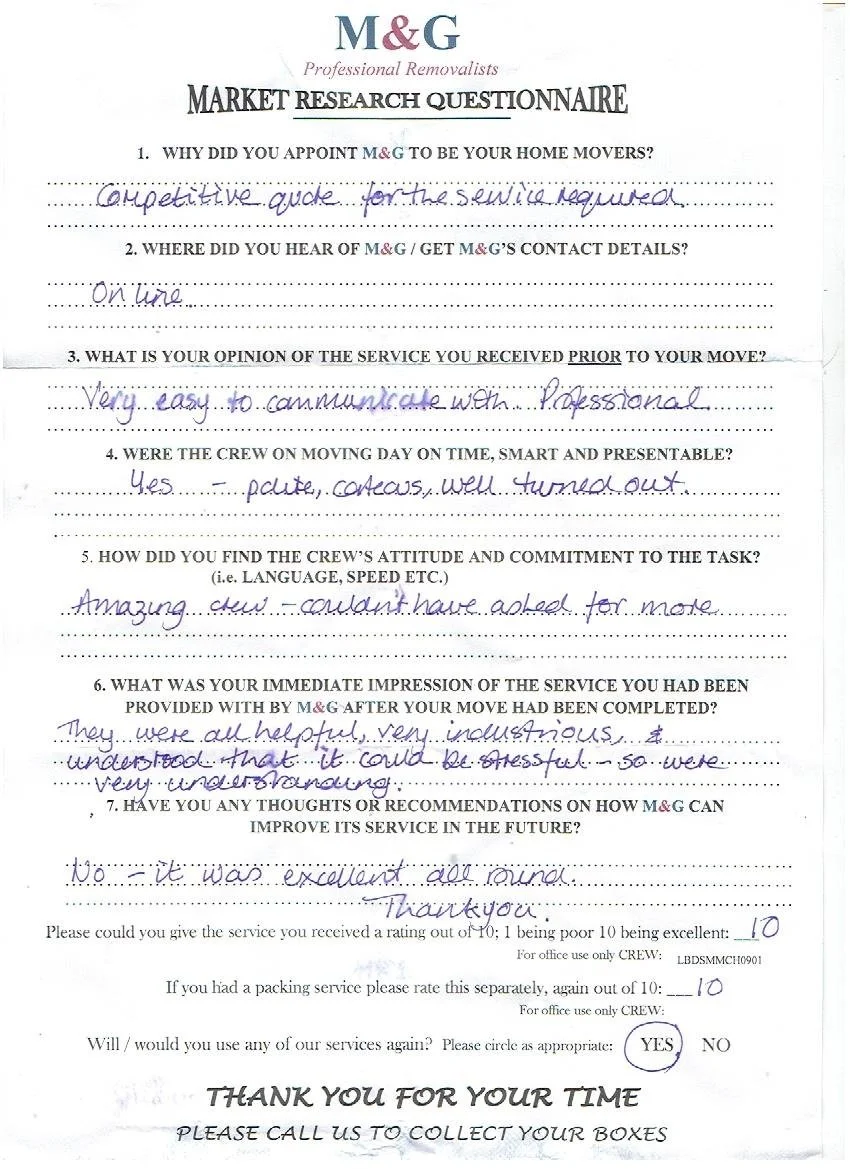 M&G
Professional Removalists
MARKET RESEARCH QUESTIONNAIRE
1. WHY DID YOU APPOINT M&G TO BE YOUR HOME MOVERS?
Competitive quote for the service required.
2. WHERE DID YOU HEAR OF M&G / GET M&G'S CONTACT DETAILS?
On line
3. WHAT IS YOUR OPINION OF THE SERVICE YOU RECEIVED PRIOR TO YOUR MOVE?
Very easy to communicate with. Professional.
4. WERE THE CREW ON MOVING DAY ON TIME, SMART AND PRESENTABLE?
Yes - polite, corteous, well turned out.
5. HOW DID YOU FIND THE CREW'S ATTITUDE AND COMMITMENT TO THE TASK?
(i.e. LANGUAGE, SPEED ETC.)
Amazing crew - couldn't have asked for more
6. WHAT WAS YOUR IMMEDIATE IMPRESSION OF THE SERVICE YOU HAD BEEN
PROVIDED WITH BY M&G AFTER YOUR MOVE HAD BEEN COMPLETED?
They were all helpful, very industrious, &
understood that it could be stressful - so were
very understanding.
7. HAVE YOU ANY THOUGHTS OR RECOMMENDATIONS ON HOW M&G CAN
IMPROVE ITS SERVICE IN THE FUTURE?
No - it was excellent all round.
Thankyou.
Please could you give the service you received a rating out of 10; 1 being poor 10 being excellent: 10
For office use only CREW: LBDSMMCH0901
If you had a packing service please rate this separately, again out of 10: 10
For office use only CREW:
Will / would you use any of our services again? Please circle as appropriate: YES NO
THANK YOU FOR YOUR TIME
PLEASE CALL US TO COLLECT YOUR BOXES